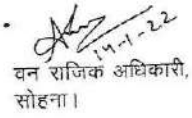 14-1-22
वन राजिक अधिकारी,
सोहना।